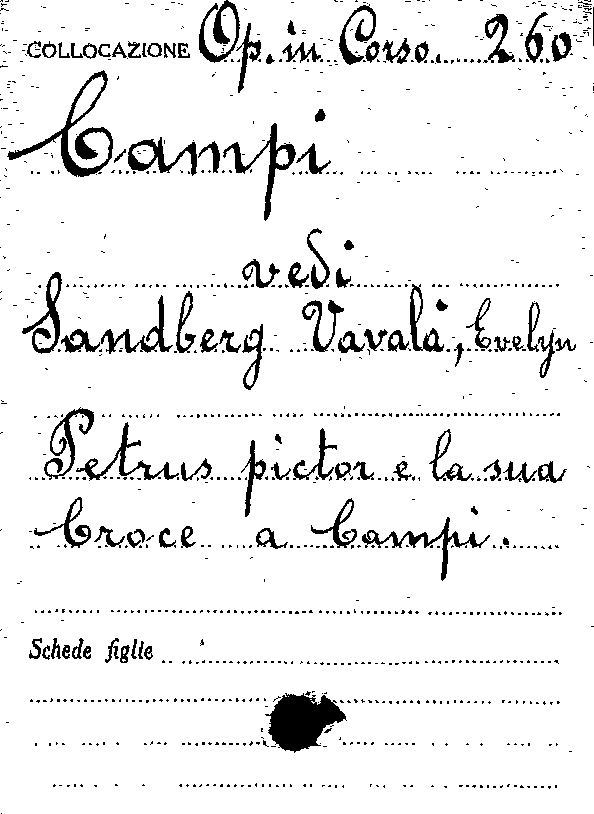 COLLOCAZIONE Op. in Corso. 260
Campi
vedi
Sandberg Vavalà, Evelyn
Petrus pictor e la sua
Croce a Campi.
Schede figlie